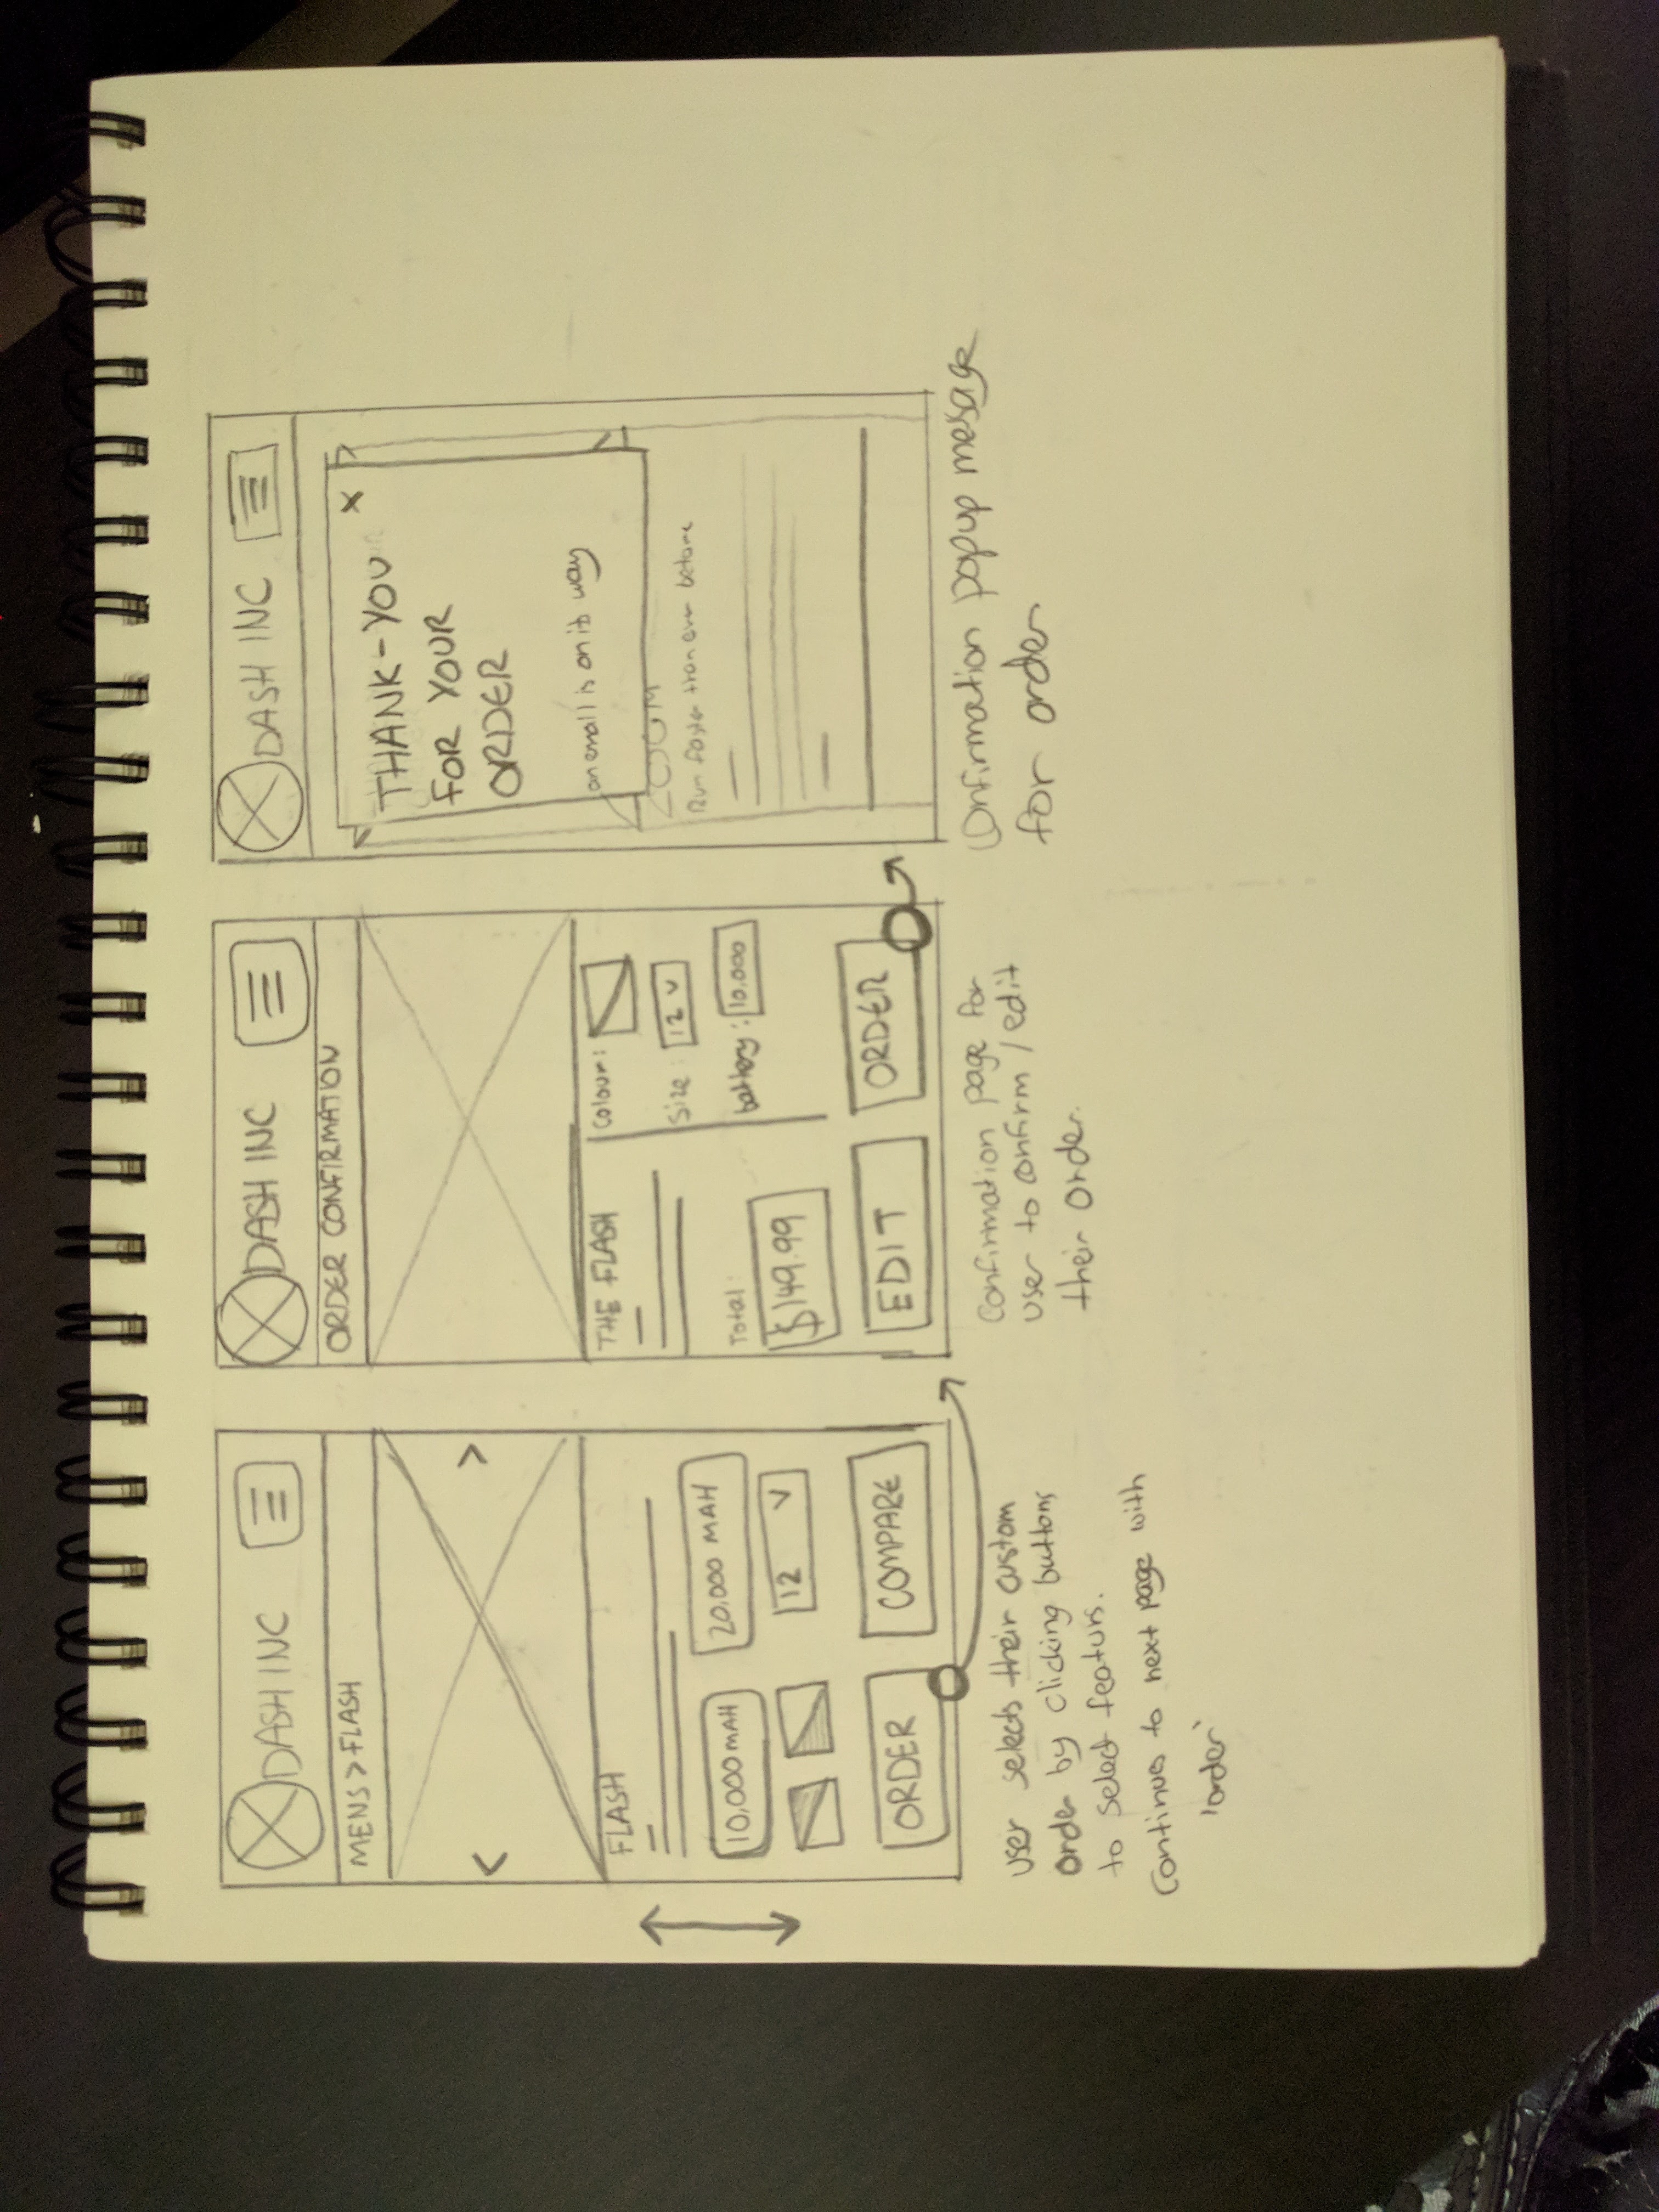 DASH INC
MENS > FLASH
<
>
FLASH
10,000 MAH
20,000 MAH
12 V
ORDER
COMPARE
user selects their custom
order by clicking buttons
to select featurs.
Continues to next page with
'order'
DASH INC
ORDER CONFIRMATION
THE FLASH
Total:
$149.99
Colour:
Size: 12 V
battery: 10,000
EDIT
ORDER
Confirmation page for
user to confirm / edit
their order.
DASH INC
X
THANK-YOU
FOR YOUR
ORDER
an email is on its way
ZOOM
Run faster than ever before
Confirmation popup message
for order